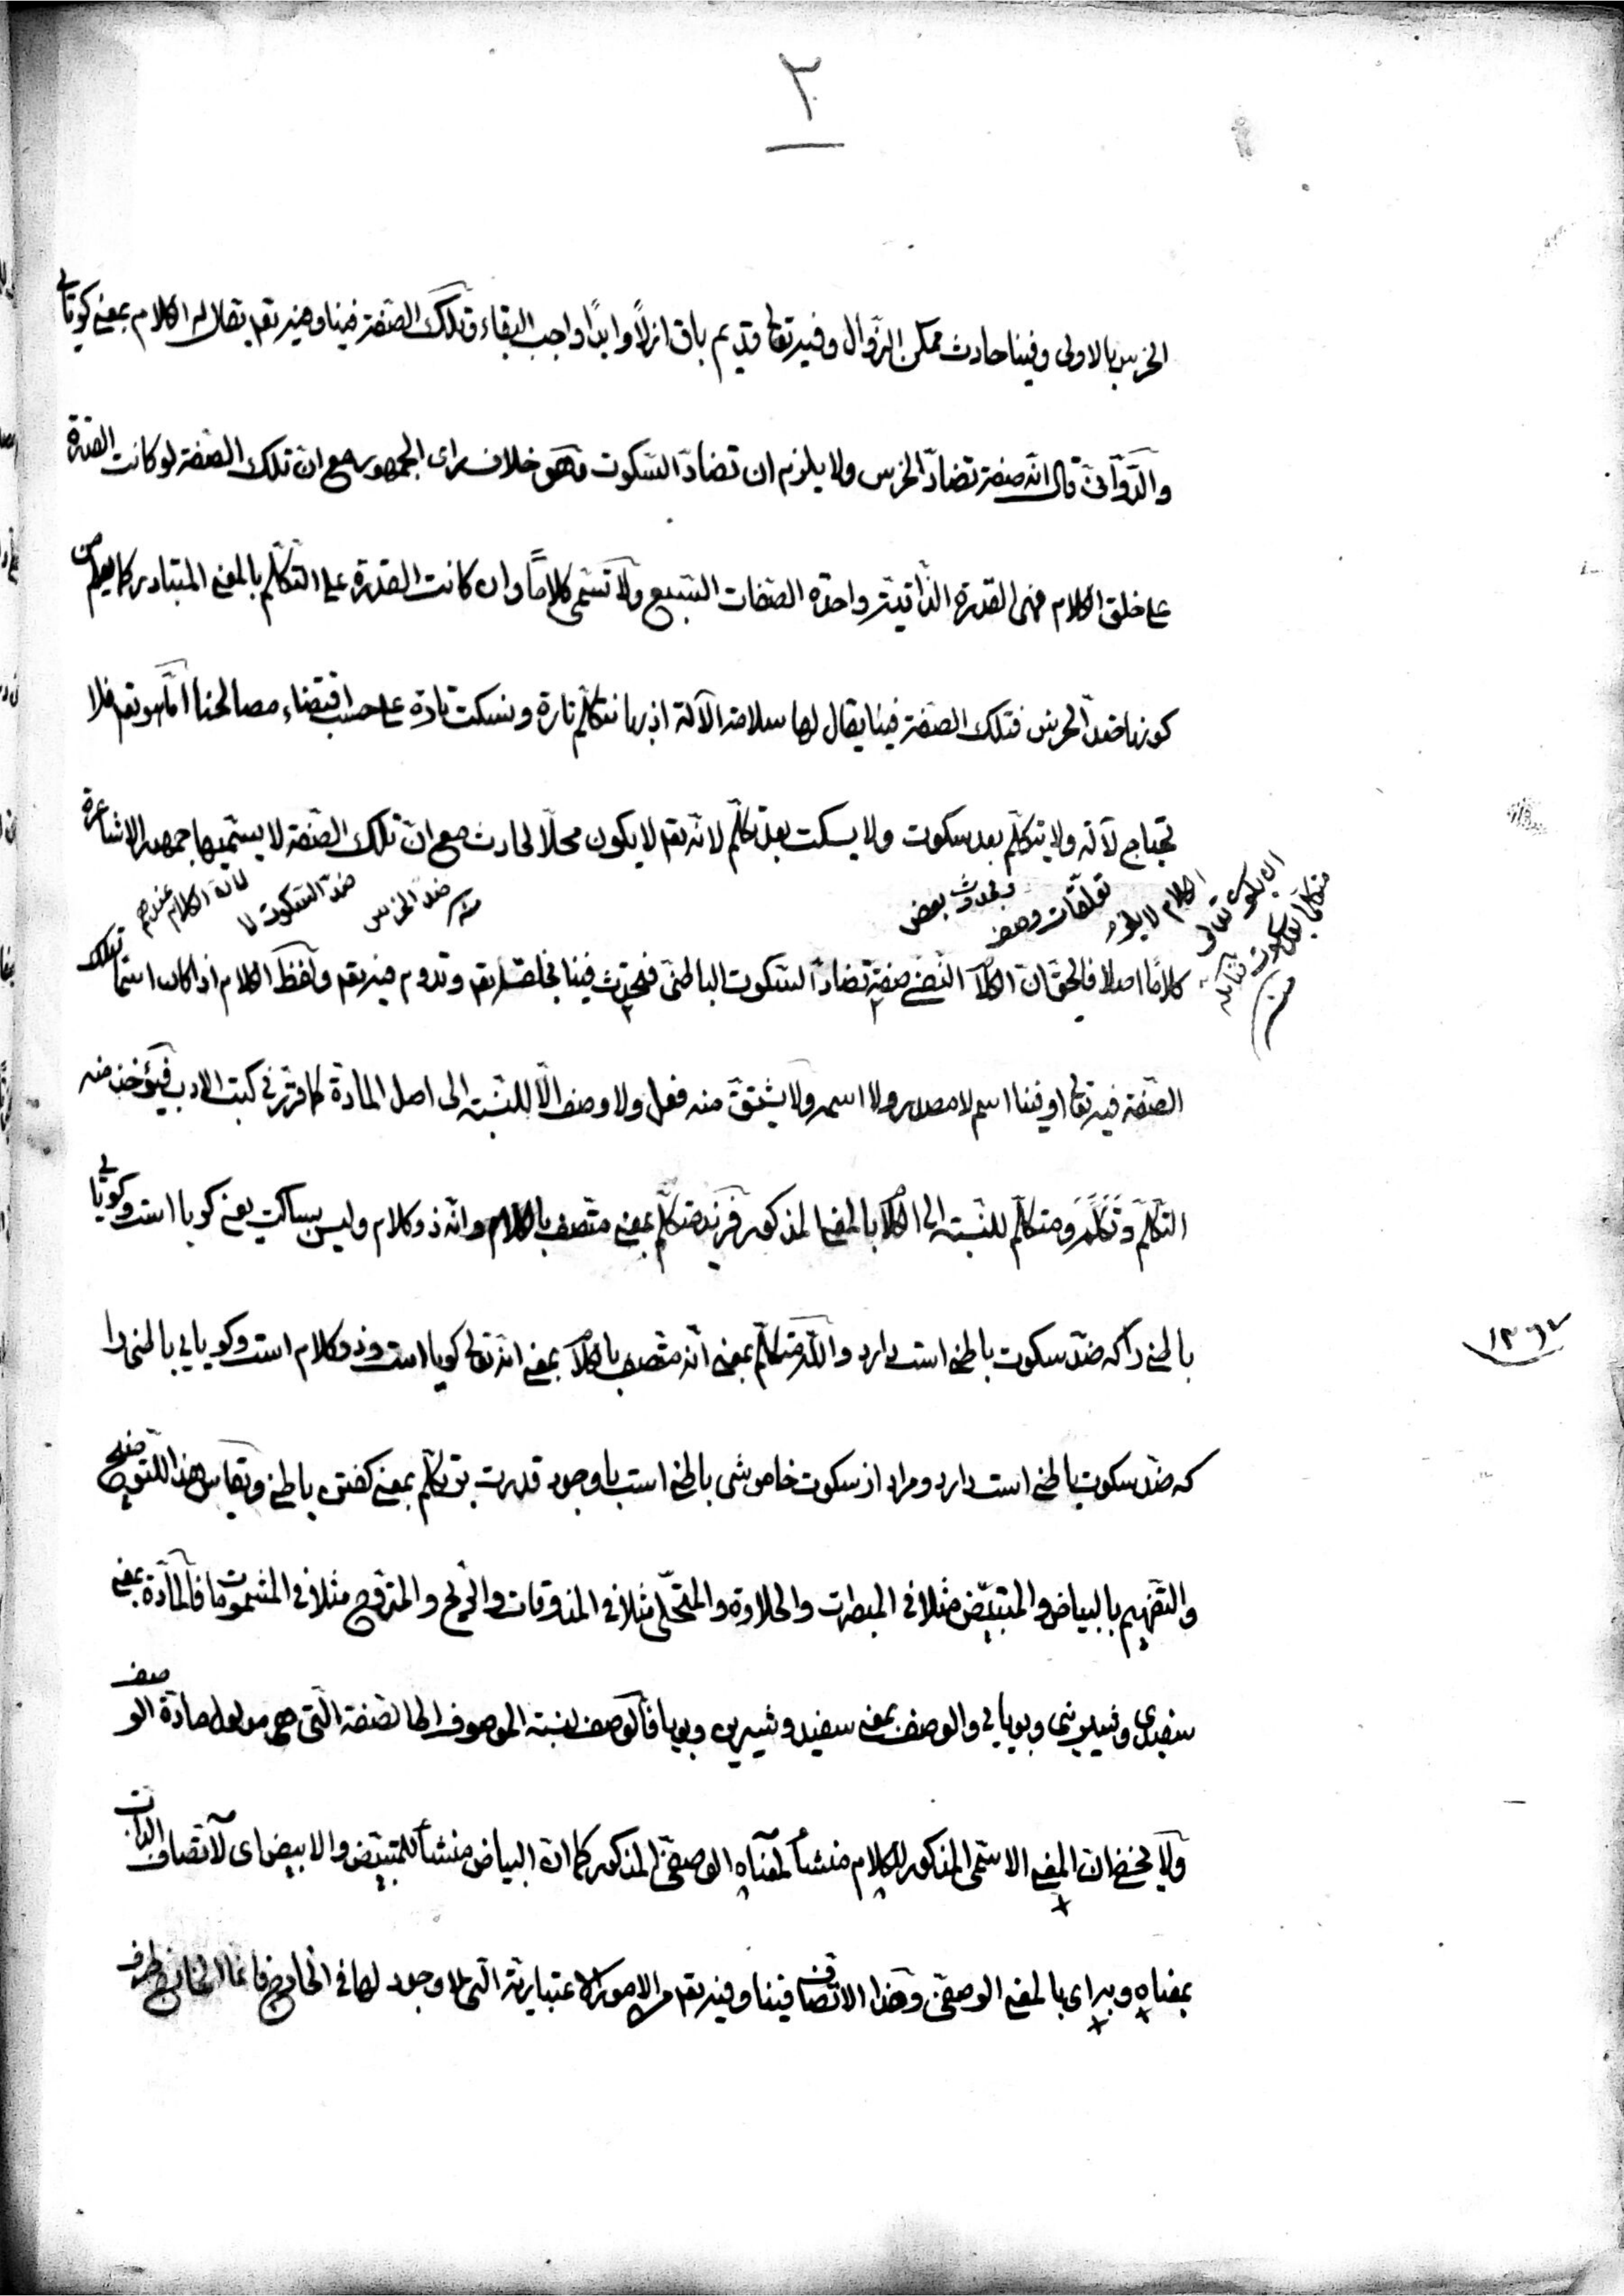 ٣
الخرس بالاولى وفينا حادث ممكن الزّوال وفيه تعالى قديم باق ازلاً وابدًا واجب البقاء وتلك الصّفة فينا وفيه تعم يقال له الكلام بمعنى كويائى
والدّوّانىّ قال انّه صفة تضادّ الخرس ولا يلزم ان تضادّ السّكوت وهو خلاف راى الجمهور مع انّ تلك الصّفة لو كانت القدرة
على خلق الكلام فهى القدرة الذّاتيّة واحدة الصّفات السّبع ولا تسمّى كلامًا وان كانت القدرة على التّكلّم بالمعنى المتبادر كما يعلم من
كونها ضدّ الخرس فتلك الصّفة فينا يقال لها سلامة الآلة اذ بها نتكلّم تارة ونسكت تارة على حسب اقتضاء مصالحنا امّا هو تعم فلا
تحتاج لآلة ولا يتكلّم بعد سكوت ولا يسكت بعد تكلّم لانّه تعم لا يكون محلّا لحادث مع انّ تلك الصّفة لا يسمّيها جمهور الاشاعرة
ضدّ الخرس
ضدّ السّكوت لا
لانّه الكلام عندهم
وبحدوث بعض
تعلّقات وصف
الكلام لا يلزم
ان يكون تعالى
متكلّما بعد سكوت
منه
كلامًا اصلا فالحقّ انّ الكلام النّفسى صفة تضادّ السّكوت الباطنىّ فتحدث فينا بخلقه تعم وتدوم فيه تعم ولفظ الكلام اذا كان اسمًا لتلك
الصّفة فيه تعالى او فينا اسم لا مصدر ولا اسمه ولا يشتقّ منه فعل ولا وصف الّا للنّسبة الى اصل المادّة كما قرّر فى كتب الادب فيؤخذ منه
التّكلّم وتكلّم ومتكلّم للنّسبة الى الكلام بالمعنى المذكور فزيد متكلّم بمعنى متّصف بالكلام وانّه ذو كلام وليس بساكت يعنى كويا است وكويائى
باطنى را كه ضدّ سكوت باطنى است دارد واللّه متكلّم بمعنى انّه متّصف بالكلام بمعنى انّه تعالى كويا است وذو كلام است وكويايى باطنى را
كه ضدّ سكوت باطنى است دارد ومراد از سكوت خاموشى باطنى است با وجود قدرت بر تكلّم بمعنى كفتن باطنى وتقاس هذا التّوضيح
والتّفهيم بالبياض والمتبيّض مثلا فى المبصرات والحلاوة والمتحلّى مثلا فى المذوقات والرّيح والمتروّح مثلا فى المشمومات فالمادّة بمعنى
سفيدى وشيرينى وبويايى والوصف بمعنى سفيد وشيرين وبويا فالوصف لنسبة الموصوف الى الصّفة الّتى هى مدلول مادّة الوصف
ولا يخفى انّ المعنى الاسمى المذكور للكلام منشأ لمعناه الوصفىّ المذكور كما انّ البياض منشأ للمتبيّض والابيض اى لاتّصاف الذّات
بمعناه وبه اى بالمعنى الوصفىّ وهذا الاتّصاف فينا وفيه تعم من الامور الاعتباريّة الّتى لا وجود لها فى الخارج فانّما الخارج ظرف